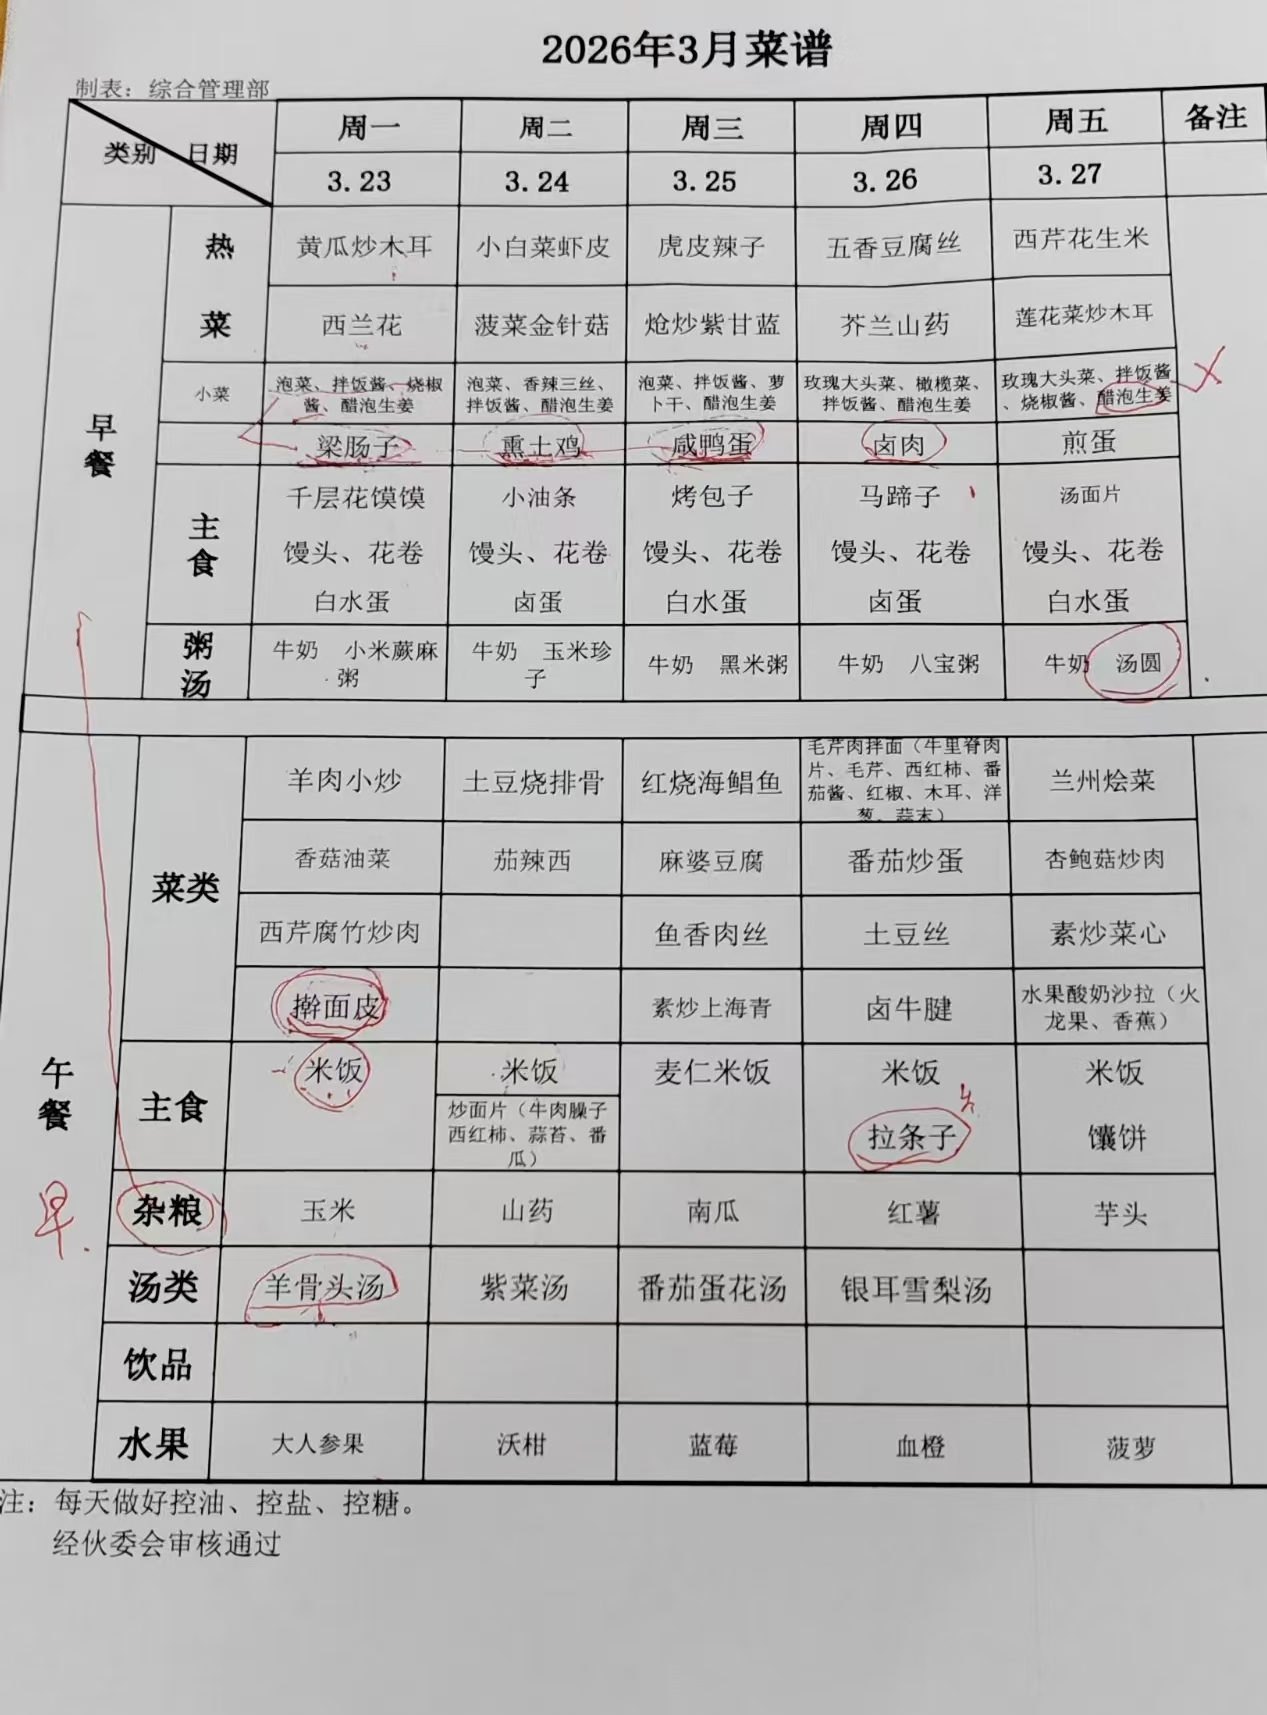 2026年3月菜谱
制表：综合管理部
类别 日期 周一 周二 周三 周四 周五 备注
3.23 3.24 3.25 3.26 3.27
早餐
热菜
黄瓜炒木耳 小白菜虾皮 虎皮辣子 五香豆腐丝 西芹花生米
西兰花 菠菜金针菇 炝炒紫甘蓝 芥兰山药 莲花菜炒木耳
小菜
泡菜、拌饭酱、烧椒酱、醋泡生姜 泡菜、香辣三丝、拌饭酱、醋泡生姜 泡菜、拌饭酱、萝卜干、醋泡生姜 玫瑰大头菜、橄榄菜、拌饭酱、醋泡生姜 玫瑰大头菜、拌饭酱、烧椒酱、醋泡生姜
梁肠子 熏土鸡 咸鸭蛋 卤肉 煎蛋
主食
千层花馍馍 小油条 烤包子 马蹄子 汤面片
馒头、花卷 馒头、花卷 馒头、花卷 馒头、花卷 馒头、花卷
白水蛋 卤蛋 白水蛋 卤蛋 白水蛋
粥汤
牛奶 小米蕨麻粥 牛奶 玉米珍子 牛奶 黑米粥 牛奶 八宝粥 牛奶 汤圆
午餐
菜类
羊肉小炒 土豆烧排骨 红烧海鲳鱼 毛芹肉拌面（牛里脊肉片、毛芹、西红柿、番茄酱、红椒、木耳、洋葱、蒜末） 兰州烩菜
香菇油菜 茄辣西 麻婆豆腐 番茄炒蛋 杏鲍菇炒肉
西芹腐竹炒肉 鱼香肉丝 土豆丝 素炒菜心
擀面皮 素炒上海青 卤牛腱 水果酸奶沙拉（火龙果、香蕉）
主食
米饭 米饭 麦仁米饭 米饭 米饭
炒面片（牛肉臊子西红柿、蒜苔、番瓜） 拉条子 馕饼
早.
杂粮 玉米 山药 南瓜 红薯 芋头
汤类 羊骨头汤 紫菜汤 番茄蛋花汤 银耳雪梨汤
饮品
水果 大人参果 沃柑 蓝莓 血橙 菠萝
注：每天做好控油、控盐、控糖。
经伙委会审核通过